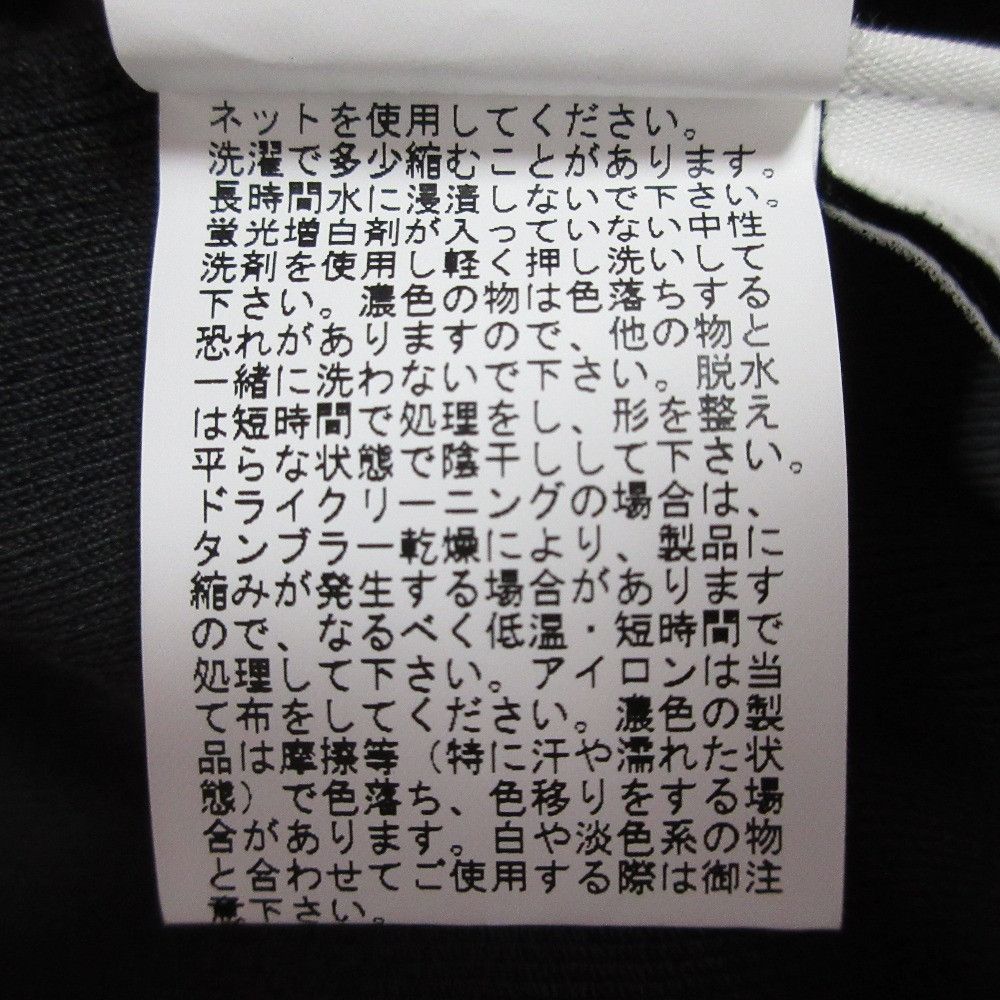 ネットを使用してください。
洗濯で多少縮むことがあります。
長時間水に浸漬しないで下さい。
蛍光増白剤が入っていない中性
洗剤を使用し軽く押し洗いして
下さい。濃色の物は色落ちする
恐れがありますので、他の物と
一緒に洗わないで下さい。脱水
は短時間で処理をし、形を整え
平らな状態で陰干しして下さい。
ドライクリーニングの場合は、
タンブラー乾燥により、製品に
縮みが発生する場合があります
ので、なるべく低温・短時間で
処理して下さい。アイロンは当
て布をしてください。濃色の製
品は摩擦等（特に汗や濡れた状
態）で色落ち、色移りをする場
合があります。白や淡色系の物
と合わせてご使用する際は御注
意下さい。